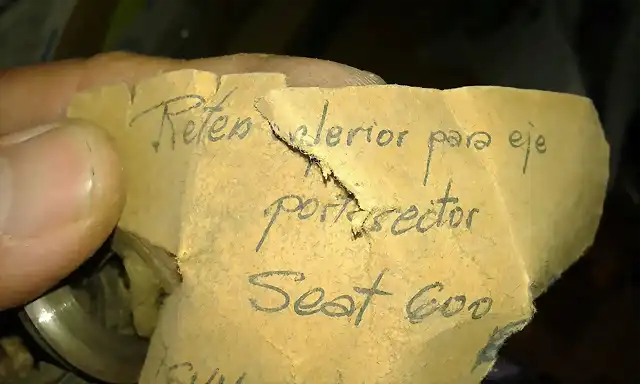 Reten interior para eje
porta sector
Seat 600